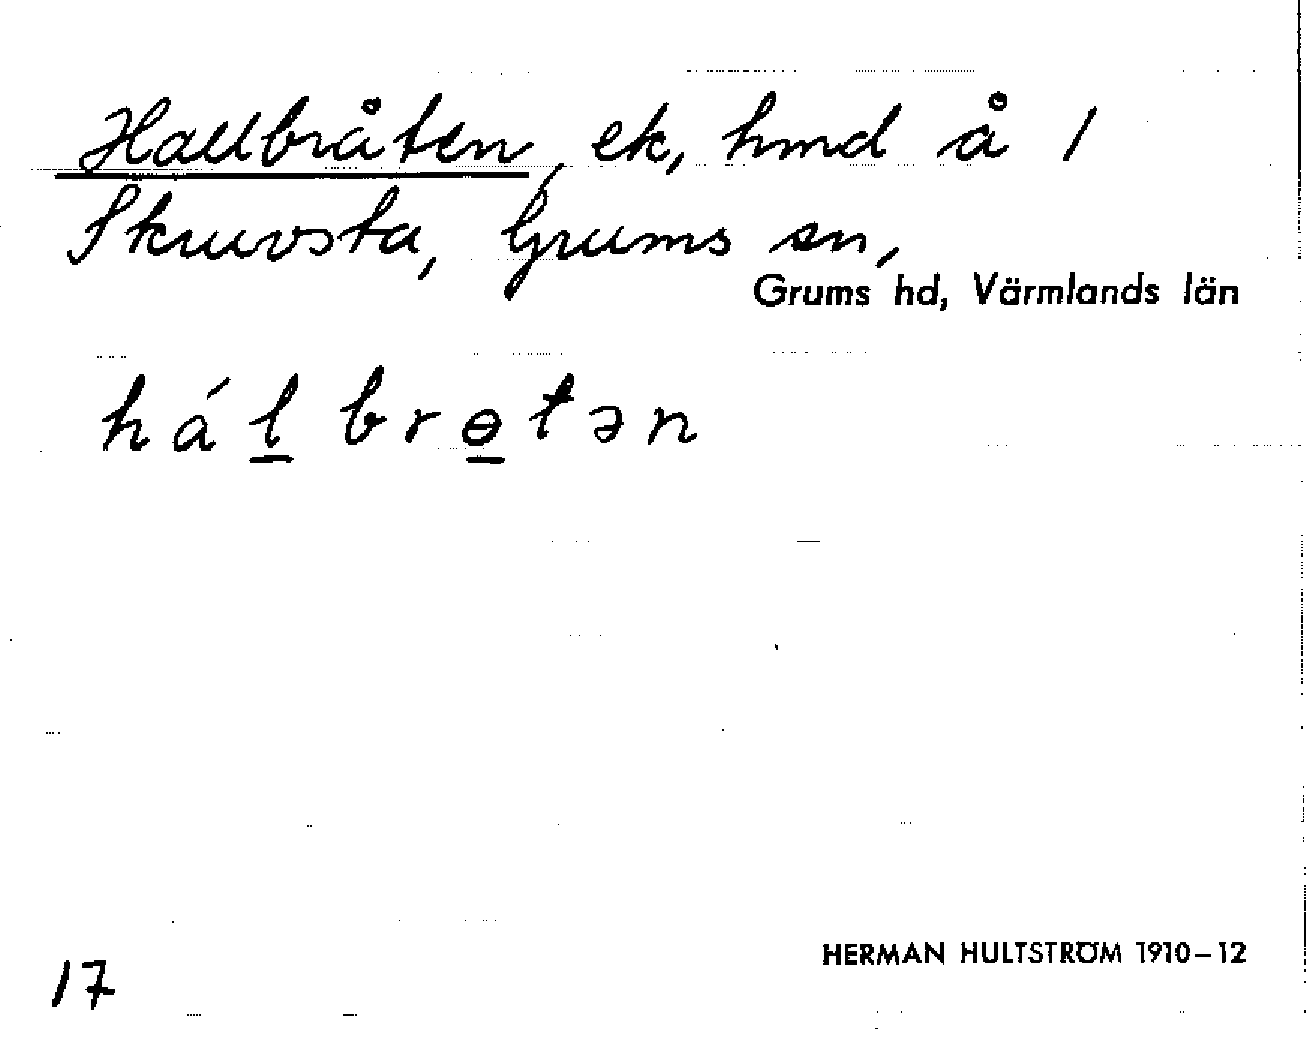 Hallbråten, ek, hmd å 1
Skruvsta, Grums sn,
Grums hd, Värmlands län
há l̲ b r ɵ̲ t ə n
17
HERMAN HULTSTRÖM 1910–12